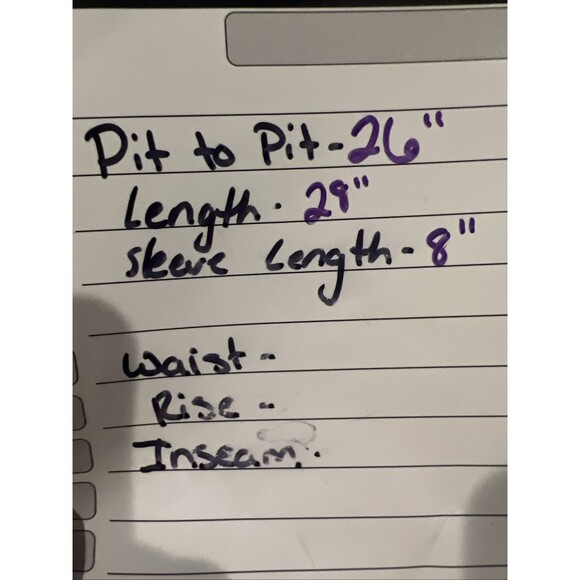 Pit to Pit-26"
Length. 29"
Sleeve Length-8"
Waist-
Rise-
Inseam.